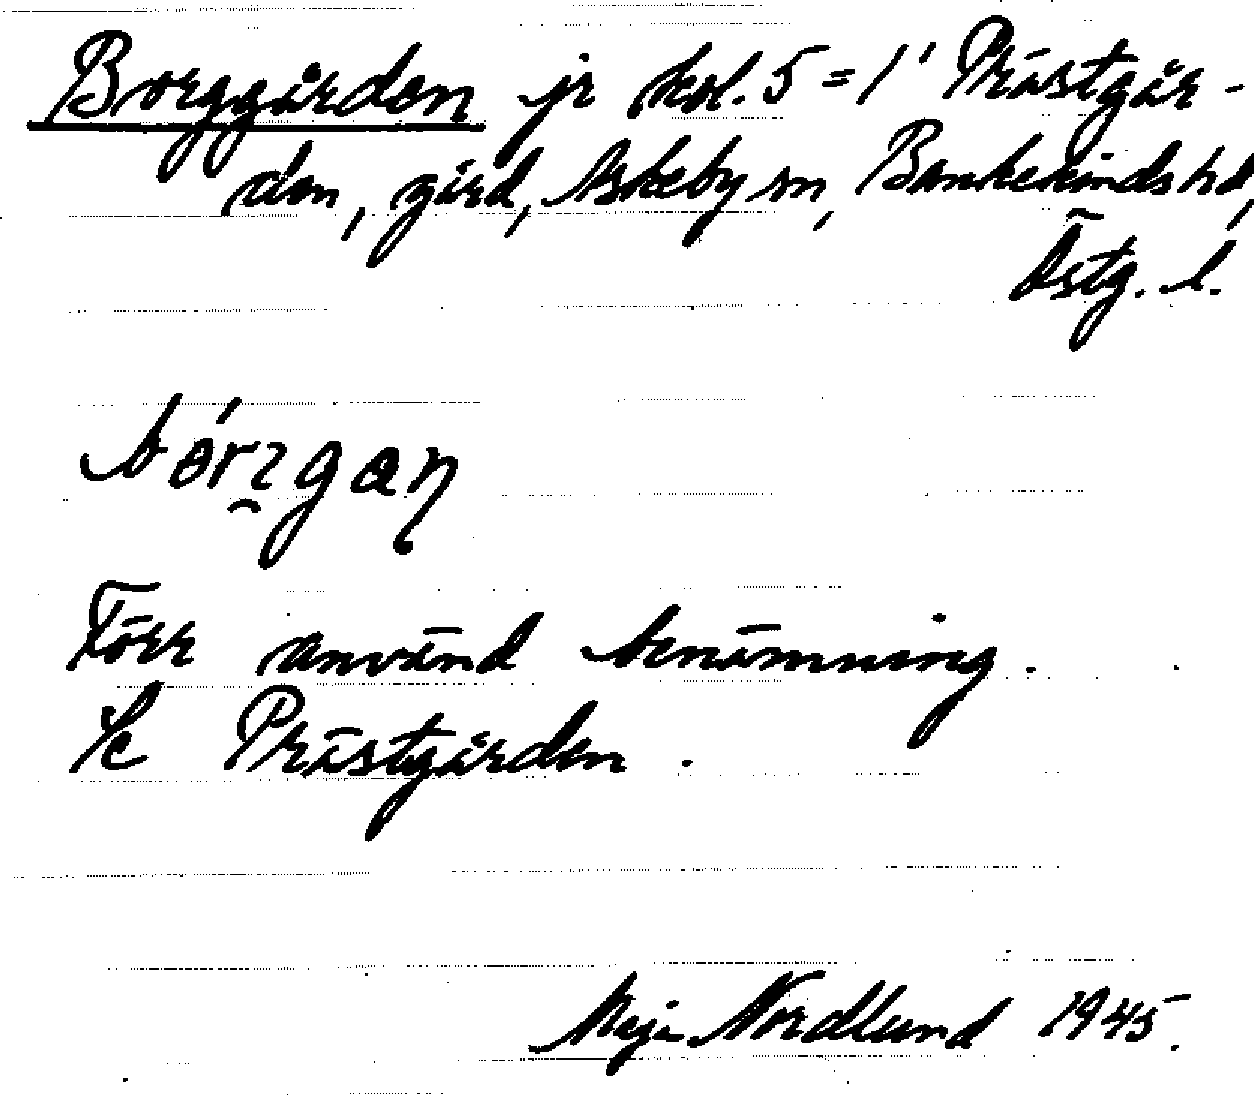 Borggården jr kol. 5 = 1' Prästgår-
den, gård, Askeby sn, Bankekinds hd,
Östg. l.
Förr använd benämning.
Se Prästgården.
Maja Nordlund 1945.